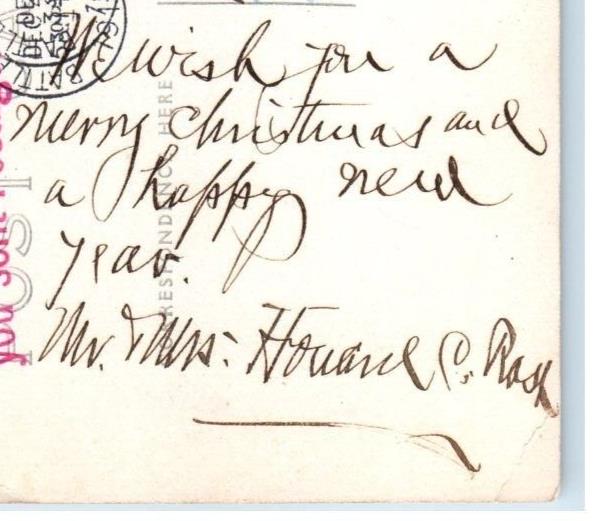 We wish you a
merry christmas and
a happy new
year.
Mr. & Mrs. Howard C. Rose
CORRESPONDENCE HERE
POST
you
DEC